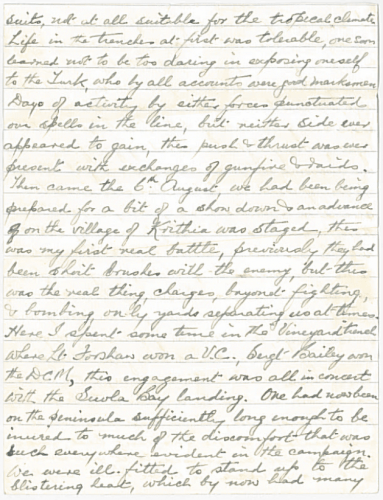 suits, not at all suitable for the tropical climate
Life in the trenches at first was tolerable, one soon
learned not to be too daring in exposing oneself
to the Turk, who by all accounts were good marksmen
Days of activity by either forces punctuated
our spells in the line, but neither side ever
appeared to gain, this push & thrust was ever
present with exchanges of gunfire & raids.
Then came the 6th August, we had been being
prepared for a bit of a show down & an advance
on the village of Krithia was staged, this
was my first real battle, previously they had
been short brushes with the enemy but this
was the real thing, charges, bayonet fighting,
& bombing only yards separating us at times.
Here I spent some time in the Vineyard trench
where Lt Forshaw won a V.C., Sergt Bailey won
the D.C.M, this engagement was all in concert
with the Suvla Bay landing. One had now been
on the peninsula sufficiently long enough to be
inured to much of the discomfort that was
such everywhere evident in the campaign.
We were ill-fitted to stand up to the
blistering heat, which by now had many